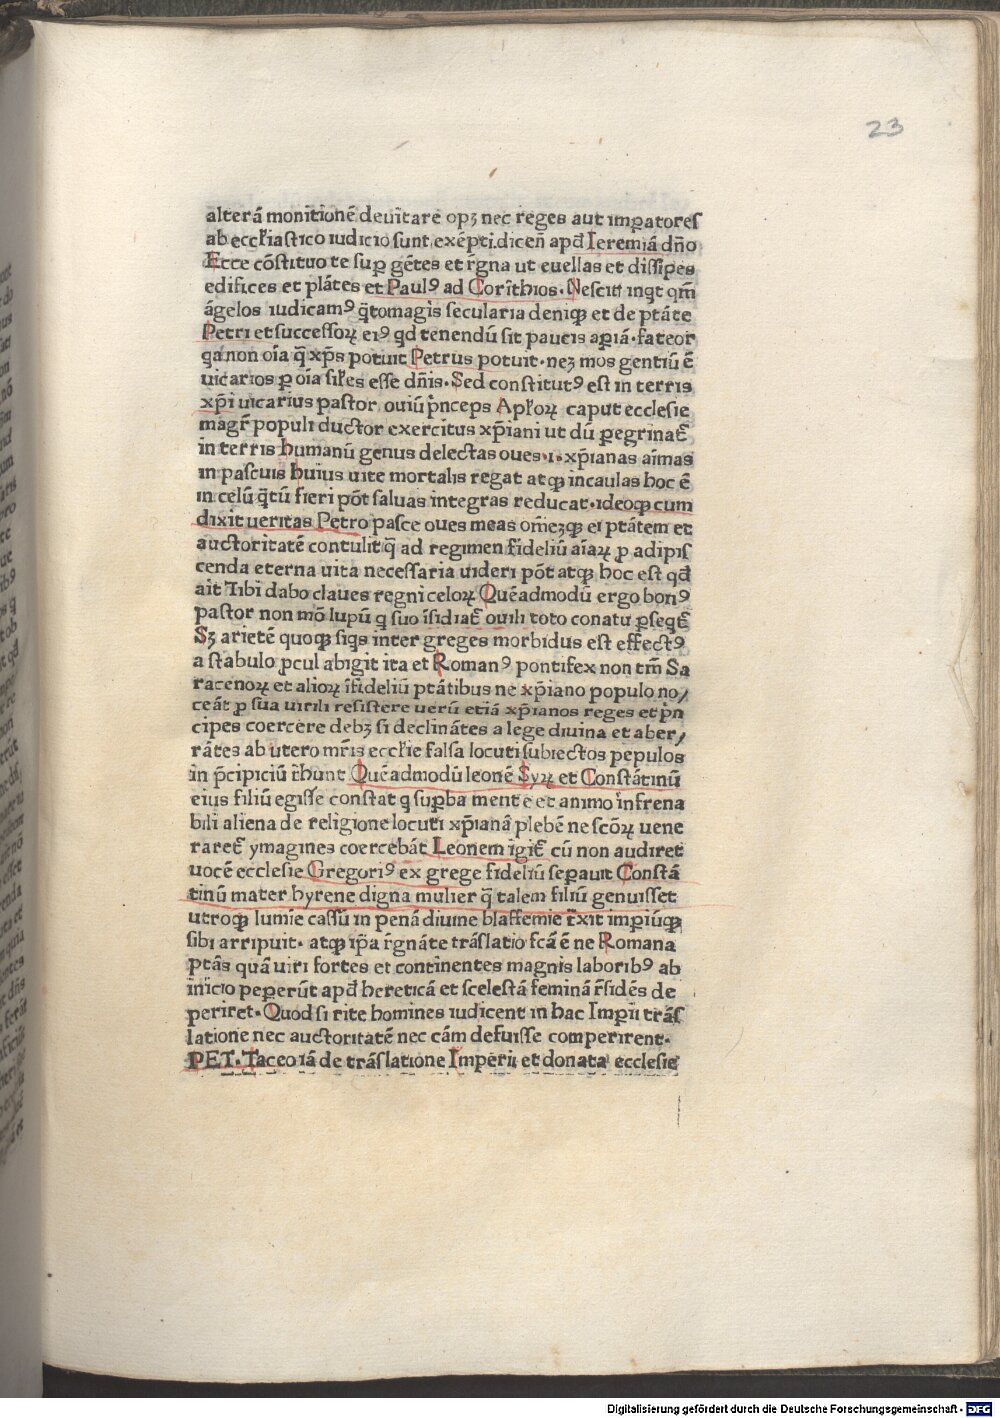 23
alterā monitionē deuitare opꝫ nec reges aut imꝑatores
ab eccłiastico iudicio sunt exēpti.dicen̄ apđ Ieremiā dn̄o
Ecce cōstituo te suꝑ gētes et r̄gna ut euellas et dissipes
edifices et plātes et Paulꝰ ad Corīthios. Nescitī inq̇t qm̄
āgelos iudicamꝰ q̄tomagis secularia deniqꝫ et de ptāte
Petri et successoꝝ eiꝰ qđ tenendū sit paucis aꝑiā.fateor
qa non oīa q̄ xp̄s potuit Petrus potuit.neꝫ mos gentiū ē
uicarios ꝑ oīa siłes esse dn̄is. Sed constitutꝰ est in terris
xp̄i uicarius pastor ouiū p̄nceps Apłoꝝ caput ecclesie
magr̄ populi ductor exercitus xp̄iani ut dū ꝑegrinat̄
in terris humanū genus delectas oues.i.xp̄ianas aīmas
in pascuis huius uite mortalis regat atqꝫ incaulas hoc ē
in celū q̄tū fieri pōt saluas integras reducat.ideoqꝫ cum
dixit ueritas Petro pasce oues meas om̄eꝫqꝫ ei ptātem et
auctoritatē contulit q̄ ad regimen fideliū aīaꝝ ꝓ adipis
cenda eterna uita necessaria uideri pōt atqꝫ hoc est qđ
ait Tibi dabo claues regni celoꝝ Quēadmodū ergo bonꝰ
pastor non mō lupū q suo īsidiat̄ ouili toto conatu ꝑseqt̄
Sꝫ arietē quoqꝫ siqs inter greges morbidus est effectꝰ
a stabulo ꝓcul abigit ita et Romanꝰ pontifex non tm̄ Sa
racenoꝝ et alioꝝ īfideliū ptātibus ne xp̄iano populo no/
ceāt ꝑ sua uirili resistere ueru etiā xp̄ianos reges et p̄n
cipes coercere debꝫ si declinātes a lege diuina et aber/
rātes ab utero mr̄is eccłie falsa locuti subiectos pepulos
in p̄cipiciū t̄hunt Quēadmodū leonē Syꝝ et Constātinū
eius filiū egisse constat q suꝑba mente et animo infrena
bili aliena de religione locuti xp̄ianā plebē ne scōꝝ uene
raret̄ ymagines coercebāt Leonem igit̄ cū non audiret
uocē ecclesie Gregoriꝰ ex grege fideliū seꝑauit Constā
tinū mater hyrene digna mulier q̄ talem filiū genuisset
utroqꝫ lumīe cassū in penā diuine blassemie r̄xit imꝑiūqꝫ
sibi arripuit. atqꝫ ip̄a r̄gnāte trāslatio fcā ē ne Romana
ptās quā uiri fortes et continentes magnis laboribꝰ ab
inicio peꝑerūt apđ hereticā et scelestā feminā r̄sidēs de
periret. Quod si rite homines iudicent in hac Imꝑii trās
latione nec auctoritatē nec cām defuisse comperirent.
PET. Taceo iā de trāslatione Imperii et donata ecclesie
Digitalisierung gefördert durch die Deutsche Forschungsgemeinschaft - DFG